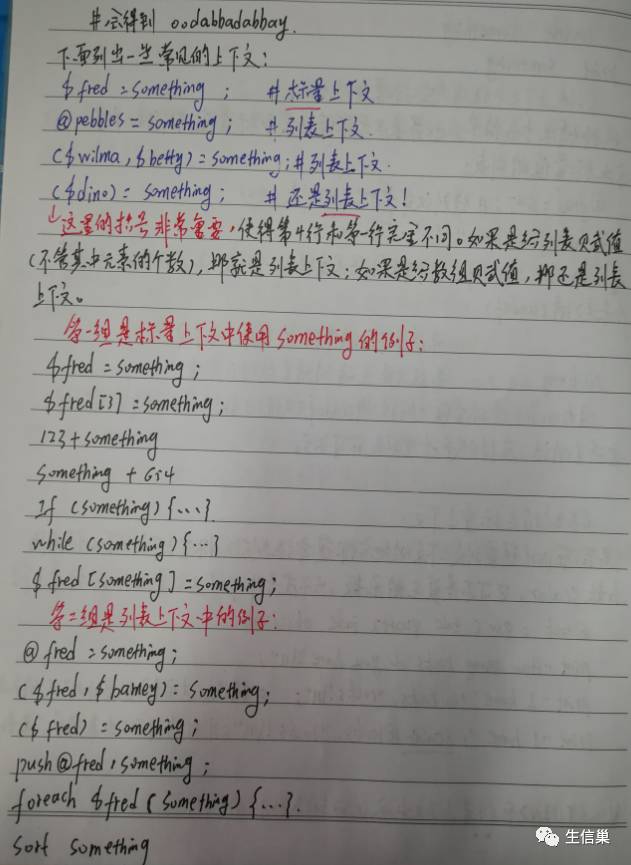 #会得到 oodabbadabbay.
下面列出一些常见的上下文：
$fred = something ; #标量上下文
@pebbles = something ; #列表上下文.
($wilma, $betty) = something; #列表上下文.
($dino) = something; # 还是列表上下文！
↓这里的括号非常重要，使得第4行和第一行完全不同。如果是给列表赋值
(不管其中元素的个数)，那就是列表上下文；如果是给数组赋值，那还是列表
上下文。
第一组是标量上下文中使用something的例子：
$fred = something ;
$fred[3] = something;
123+something
something + 654
If (something) {...}
while (something) {...}
$fred [something] = something;
第二组是列表上下文中的例子：
@fred = something;
($fred, $barney) = something;
($fred) = something ;
push @fred, something ;
foreach $fred (something) {...}.
sort something
生信巢